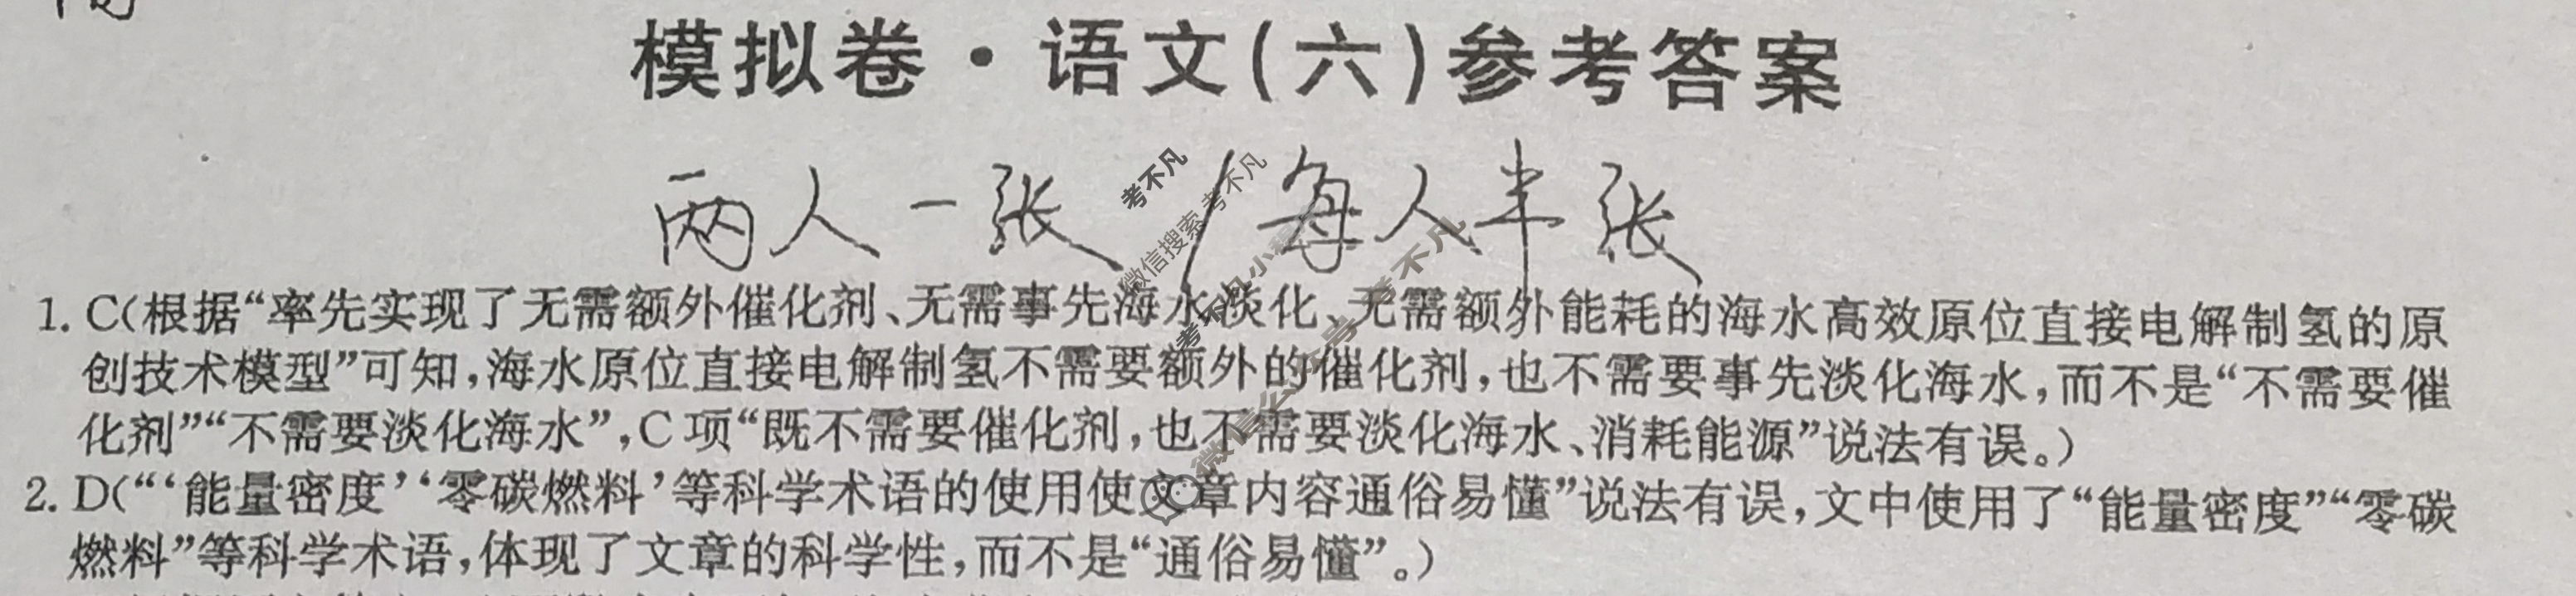 模拟卷·语文(六)参考答案
两人一张/每人半张
考不凡
微信搜索考不凡
1. C(根据“率先实现了无需额外催化剂、无需事先海水淡化、无需额外能耗的海水高效原位直接电解制氢的原
创技术模型”可知,海水原位直接电解制氢不需要额外的催化剂,也不需要事先淡化海水,而不是“不需要催
化剂”“不需要淡化海水”,C项“既不需要催化剂,也不需要淡化海水、消耗能源”说法有误。)
2. D(“‘能量密度’‘零碳燃料’等科学术语的使用使文章内容通俗易懂”说法有误,文中使用了“能量密度”“零碳
燃料”等科学术语,体现了文章的科学性,而不是“通俗易懂”。)